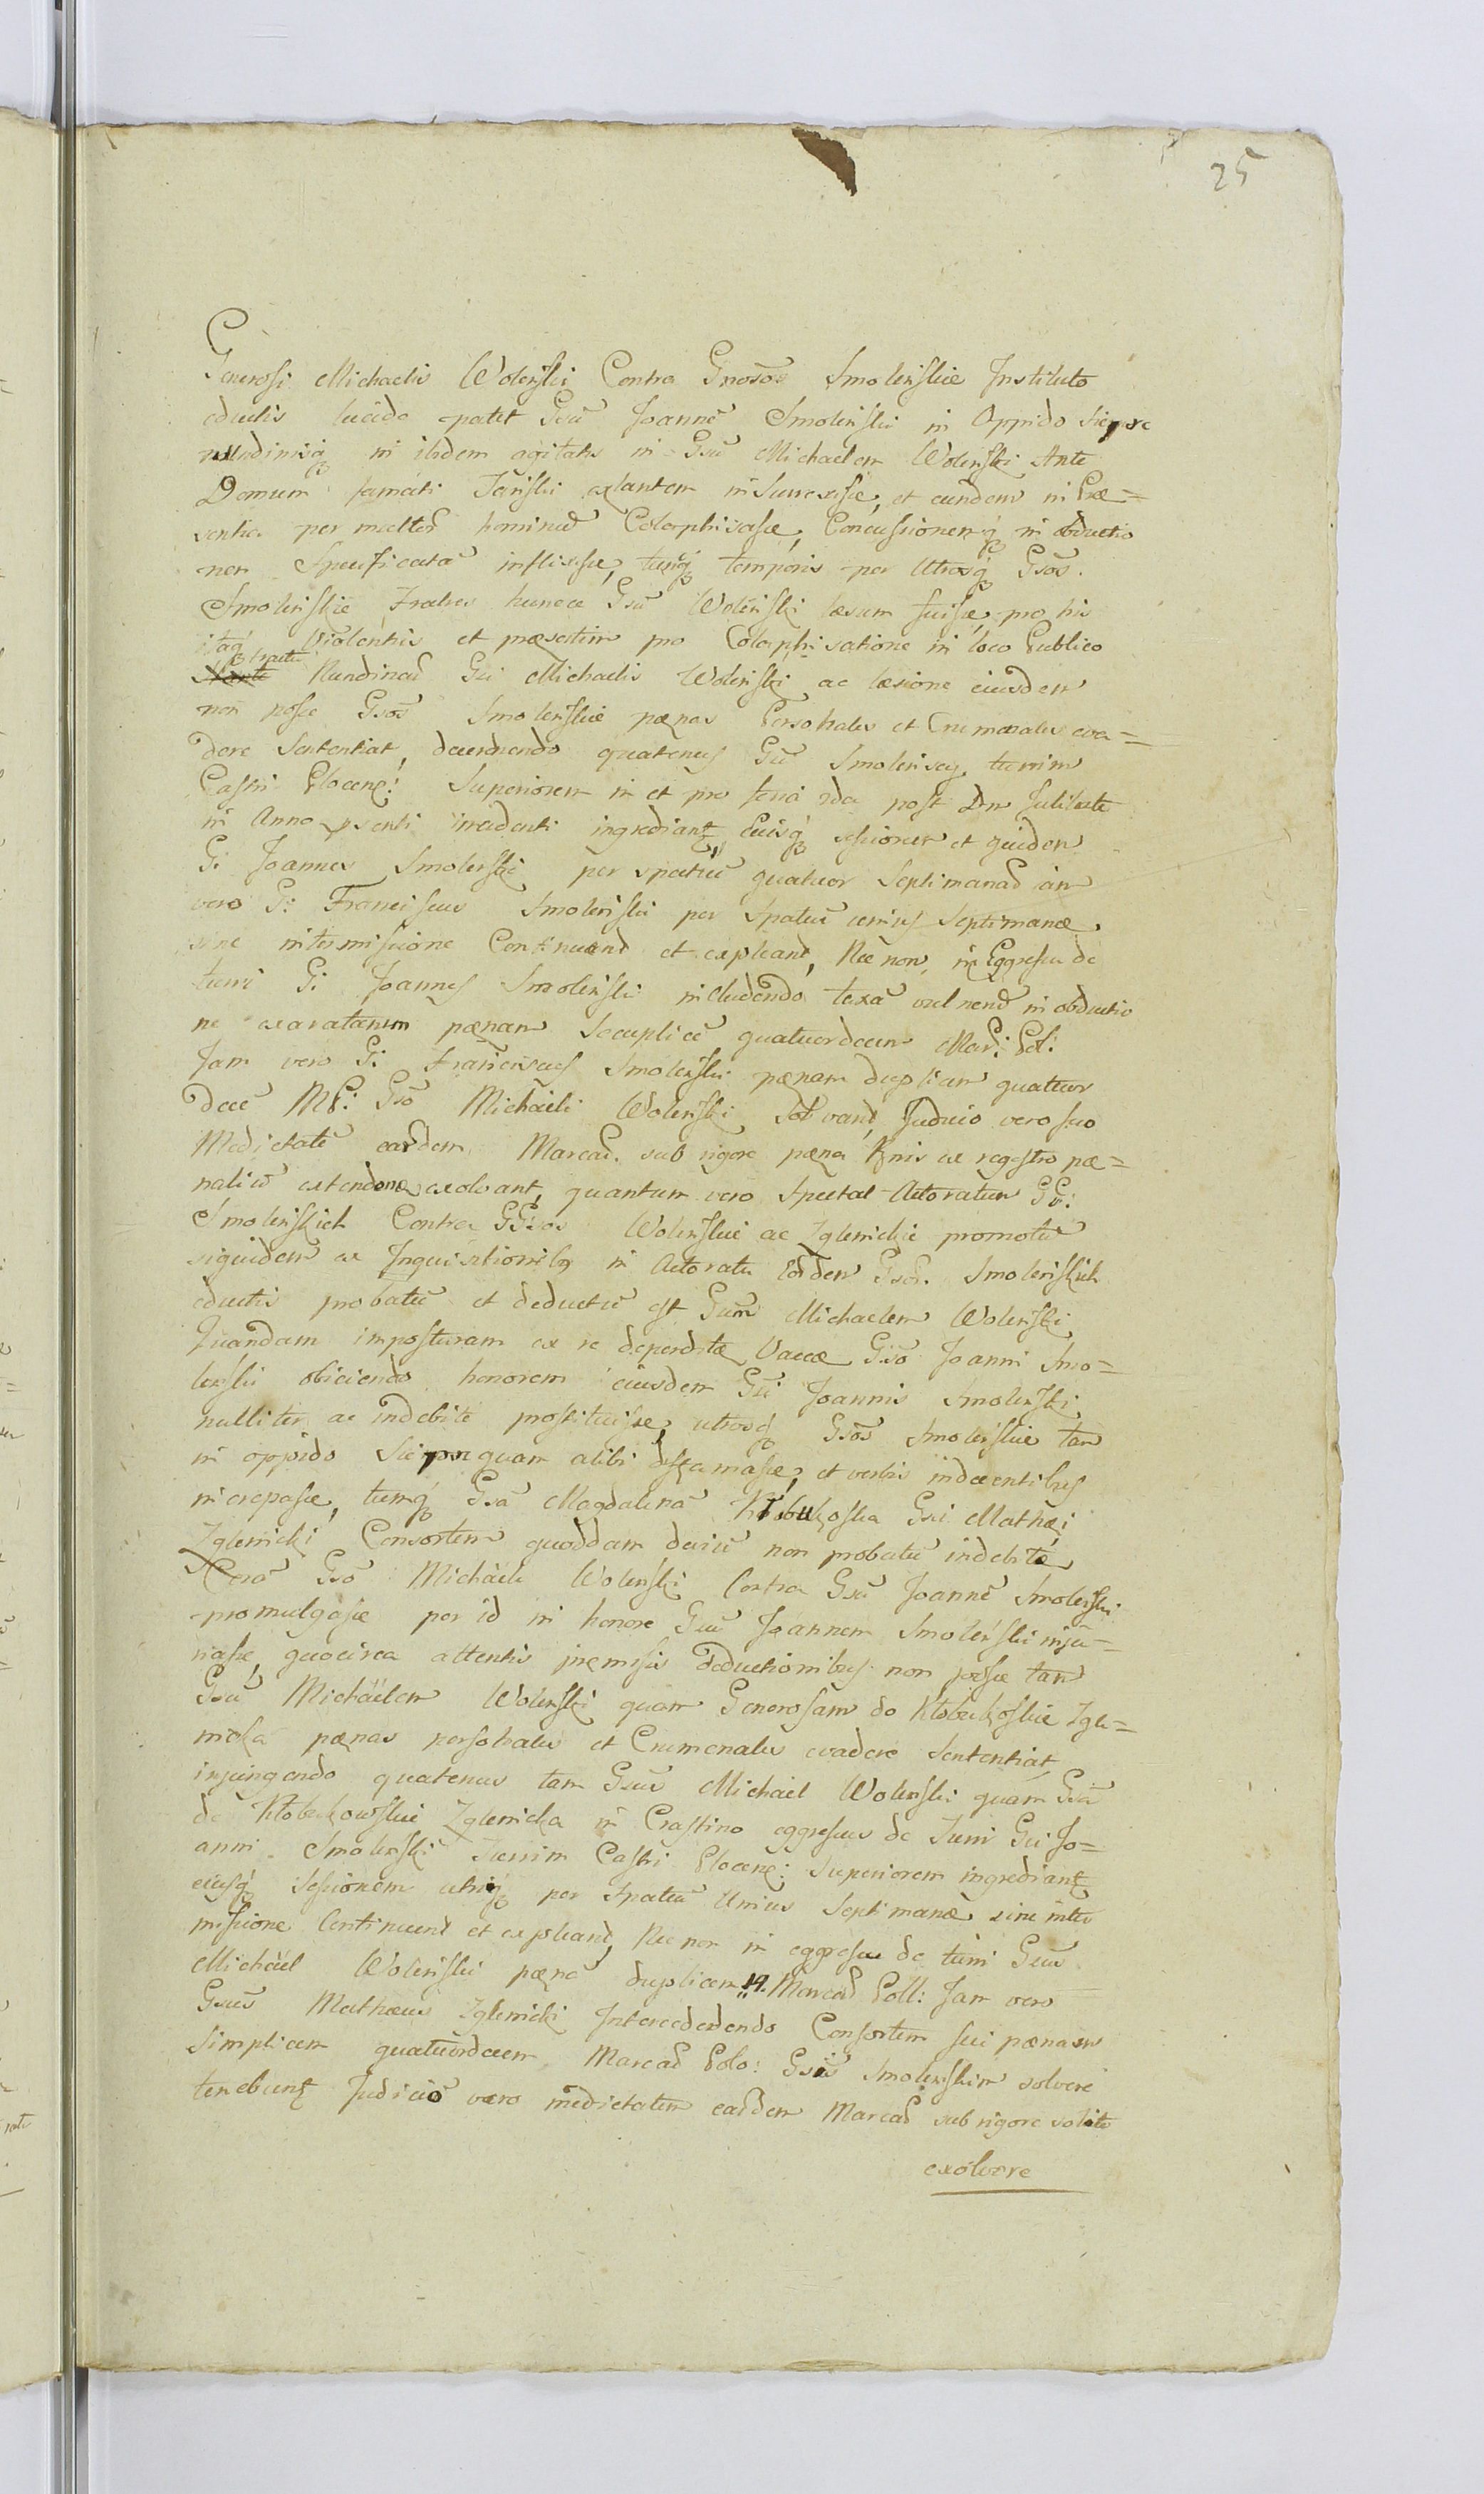 25
Generosi Michaelis Woleński Contra Gnosos Smoleńskie Instituto
eductis lucide patet Gsũ Joannẽ Smoleński in Oppido Sierpc
nundinisq́ in ibidem agitatis in Gsũ Michaelem Woleński Ante
Domum famati extantem insurrexisse, et eundem in Præ=
sentia per multor̃ hominũ Colaphisasse, Concussionemq́ in obductio
nen Specificatã inflixisse, tunq́ temporis per Utrosq́ Gsõs.
Smoleńskie Fratres hunce Gsũ Woleński læsum fuisse, pro his
itaq́ Violentiis et præsertim pro Colaphisatione in loco Publico
Nundinar̃ Gsi Michaelis Woleński ac læsione eiusdem
non posse Gsõs Smoleńskie pænas Personales et Crumenales eva=
dere Sententiat, decernendo quatenus Gũ Smolenscy turrim
Castri Plocen: Superiorem in et pro feria 2da post Dnı Jubilate
in Anno psenti incidenti ingrediant, Euisq́ sessionem et quidem
G: Joannes Smoleński per spatiũ quatuor Septimanar̃ am
vero G: Franciscus Smoleński per Spatiũ unius Septimanæ
sine intermissione Continuent et expleant, Nec non in Eggressu de
turri G: Joannes Smoleński includendo taxã vulnerũ in obductio
ne exaratarum pænam quatuordecim Mar: Pol:
Jam vero G: Franciscus Smoleński pænam duplicem quatuor
decẽ MP: Gsõ Michaeli Woleński Solvant, Judicio vero suo
Medietatẽ earũdem Marcar̃. sub rigore pæna ex regestro pæ=
naliũ extendenæ exolvant, quantum vero Spectat Actoratum GG:
Smoleńskich Contra GGsos Woleńskie ac Zglenickie promotũ
siquidem ex Inquisitionibus in Actoratu eor̃dem Gsor. Smoleńskich
eductis probatũ et deductũ est Gsum Michaelem Woleński
Quandam imposturam ex re deperditæ Vaccæ Gsõ Joanni Smo=
leński obiciendo honorem eiusdem Gsi Joannis Smoleński
nulliter ac indebite prostituisse, utrosq́ Gsõs Smoleńskie tam
in oppido Sierpc quam alibi diffamasse, et verbis indecentibus
increpasse, tumq́ Gsã Magdalenã Kłobukoska Gsi Mathæi
Zglenicki Consortem quoddam non probatũ indebite
Corã Gsõ Michaele Woleński Contra Gsũ Joannẽ Smoleński
promulgasse per id in honore Gsũ Joannem Smoleński injũ=
riasse, quocirca attentis præmissis deductionibus non posse tam
Gsũ Michaelem Woleński quam Generosam de Kłobukoskie Zgle=
nicka pænas personales et Crumenales evadere Sententiat,
injungendo quatenus tam Gsus Michael Woleński quam Gsã
de Kłobukowskie Zglenicka in Crastino eggressus de Turri Gsi Jo=
anni Smoleński Turrim Castri Plocen: Superiorem ingrediant
eiusq́ Sessionem utriq́ per Spatiũ Unius Septimanæ sine inter
missione Continuent et expleant, Nec non in eggressu de turri Gsus
Michael Woleński pænã duplicem 14. Marcar̃ Poll: Jam vero
Gsus Mathæus Zglenicki Intercedendo Consortem sui pænam
simplicem quatuordecem Marcar̃ Polo: Gsis Smoleńskim solvere
tenebunt Judiciõ vero medietatem eardem Marcar̃ sub rigore solito
exolvere